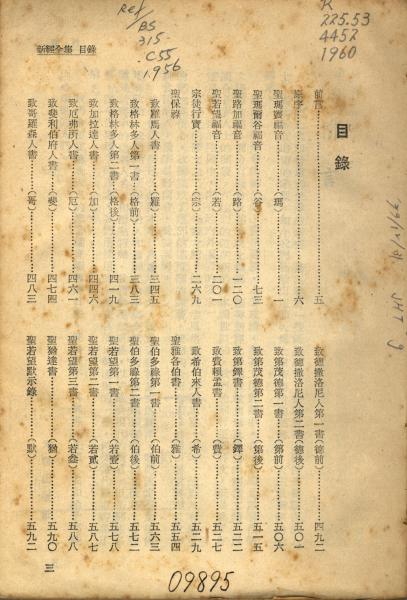 Ref
BS
315
.C55
1956
R
225.53
4452
1960
新經全集 目錄
目錄
前言……五
宗序……六
聖瑪竇福音……(瑪)……一
聖瑪爾谷福音……(谷)……七三
聖路加福音……(路)……一二〇
聖若望福音……(若)……二一〇
宗徒行實……(宗)……二六九
聖保祿
致羅馬人書……(羅)……三四五
致格林多人第一書……(格前)……三八三
致格林多人第二書……(格後)……四一九
致加拉達人書……(加)……四四六
致厄弗所人書……(厄)……四六一
致斐利伯府人書……(斐)……四七四
致哥羅森人書……(哥)……四八三
致德撒洛尼人第一書(德前)……四九二
致德撒洛尼人第二書(德後)……五〇一
致第茂德第一書……(第前)……五〇六
致第茂德第二書……(第後)……五一五
致第鐸書……(鐸)……五二二
致費賴孟書……(費)……五二七
致希伯來人書……(希)……五二九
聖雅各伯書……(雅)……五五四
聖伯多祿第一書……(伯前)……五六三
聖伯多祿第二書……(伯後)……五七二
聖若望第一書……(若壹)……五七八
聖若望第二書……(若貳)……五八七
聖若望第三書……(若叁)……五八八
聖猶達書……(猶)……五九〇
聖若望默示錄……(默)……五九二
三
09895